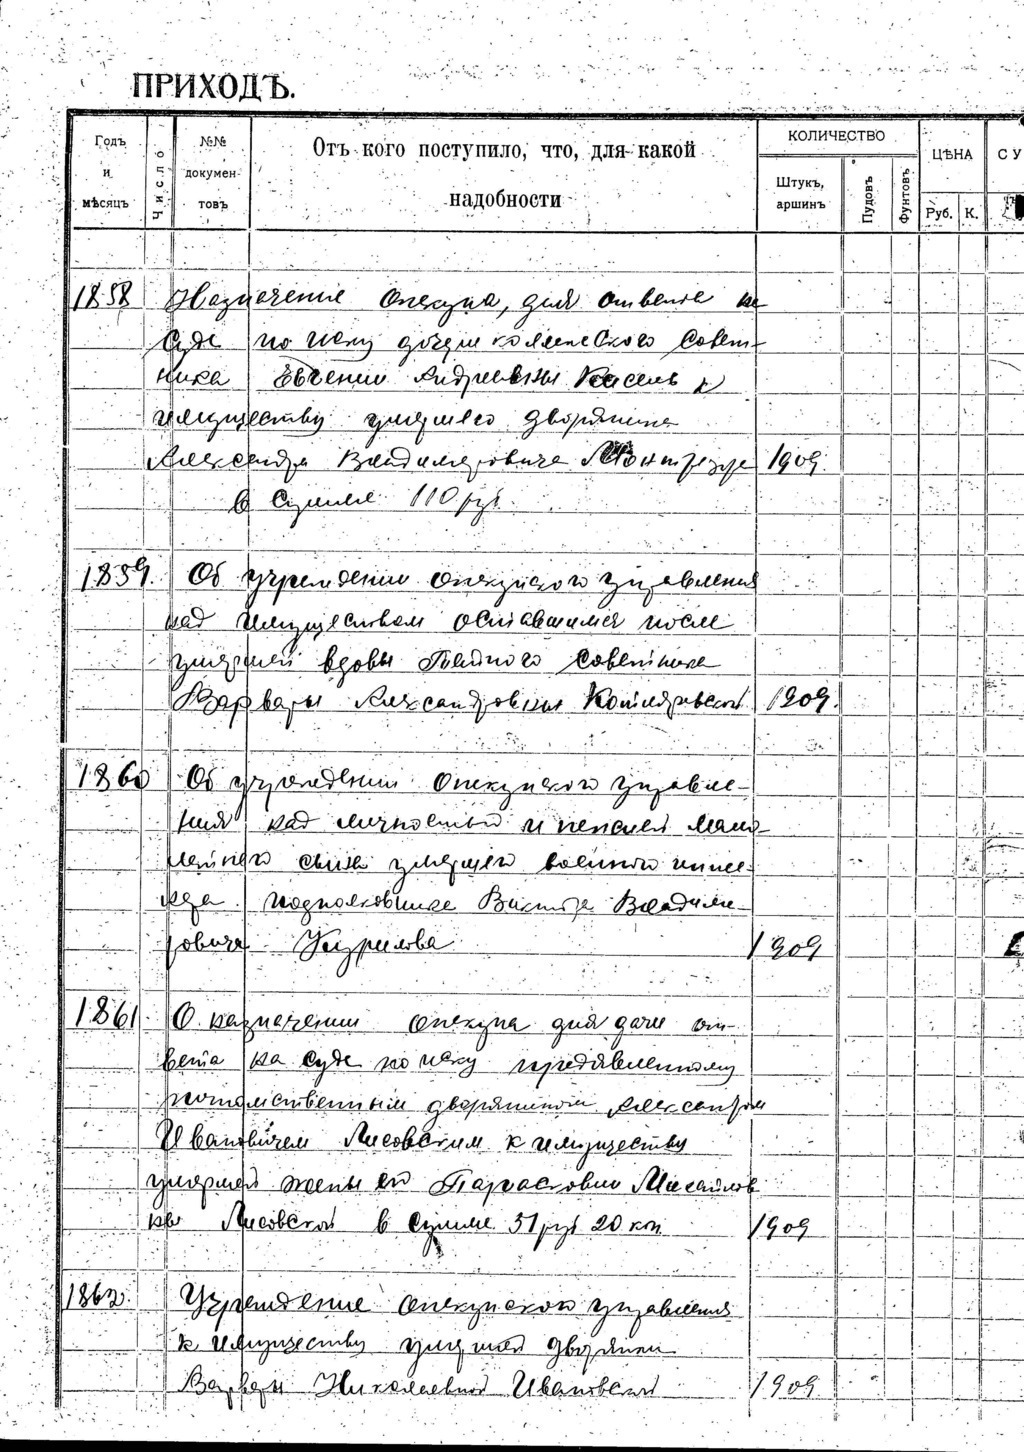 ПРИХОДЪ.
Годъ и мѣсяцъ
Число
№№ докумен- товъ
Отъ кого поступило, что, для какой
надобности
КОЛИЧЕСТВО
Штукъ, аршинъ
Пудовъ
Фунтовъ
ЦѢНА
Руб.
К.
СУ
1858 Назначение опекуна, для ответа на
суде по иску дочери коллежского Совет-
ника Евгении Андреевны Кисель к
имуществу умершего дворянина
Александра Владимировича Монтрезора 1909
в сумме 110 руб.
1859. Об учреждении опекунского управления
над имуществом оставшимся после
умершей вдовы Тайного Советника
Варвары Александровны Котляревской 1909.
1860 Об учреждении опекунского управле-
ния над личностью и пенсией мало-
летнего сына умершего военного инже-
нера подполковника Виктора Владими-
ровича Кирилова 1909
1861 О назначении опекуна для дачи от-
вета на суде по иску предъявленному
потомственным дворянином Александром
Ивановичем Лисовским к имуществу
умершей жены его Парасковии Михайлов
ны Лисовской в сумме 51 руб 20 коп 1909
1862. Учреждение опекунского управления
к имуществу умершей дворянки
Варвары Николаевной Ивановской 1909